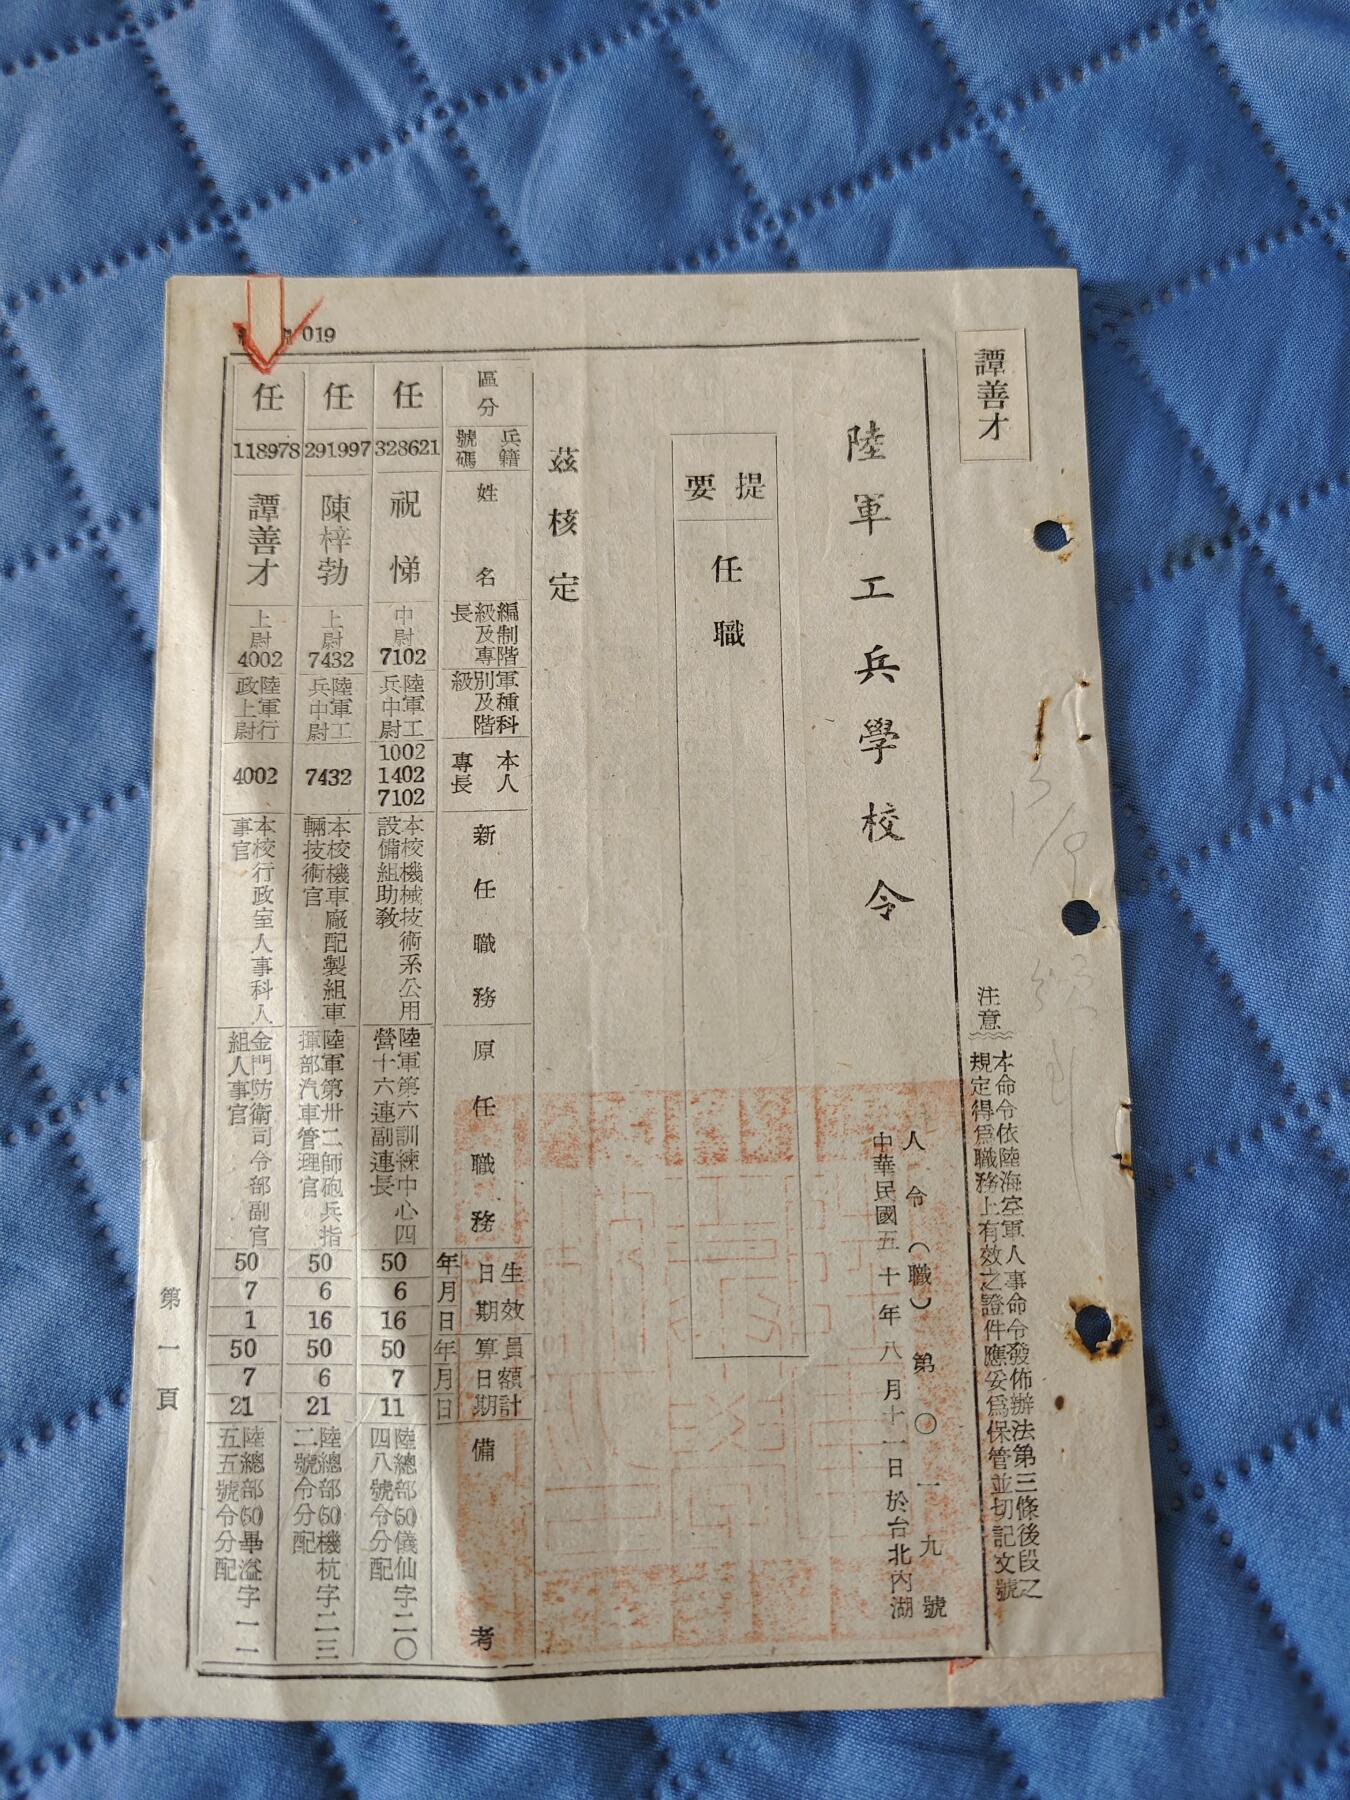 譚善才
注意
本命令依陸海空軍人事命令發佈辦法第三條後段之
規定得爲職務上有效之證件應妥爲保管並切記文號
陸軍工兵學校令
人令（職）第〇一九號
中華民國五十年八月十一日於台北內湖
提要
任職
茲核定
區分
兵籍號碼
姓名
編制階級及專長
軍種科別及階級
本人專長
新任職務
原任職務
生效日期
年月日
員額計算日期
年月日
備考
任
328621
祝悌
中尉
7102
陸軍工兵中尉
1002
1402
7102
本校機械技術系公用
設備組助教
陸軍第六訓練中心四
營十六連副連長
50
6
16
50
7
11
陸總部50儀仙字二〇
四八號令分配
任
291997
陳梓勃
上尉
7432
陸軍工兵中尉
7432
本校機車廠配製組車
輛技術官
陸軍第卅二師砲兵指
揮部汽車管理官
50
6
16
50
6
21
陸總部50機杭字二三
二號令分配
任
118978
譚善才
上尉
4002
陸軍行政上尉
4002
本校行政室人事科人
事官
金門防衛司令部副官
組人事官
50
7
1
50
7
21
陸總部50畢溢字一一
五五號令分配
019
第一頁